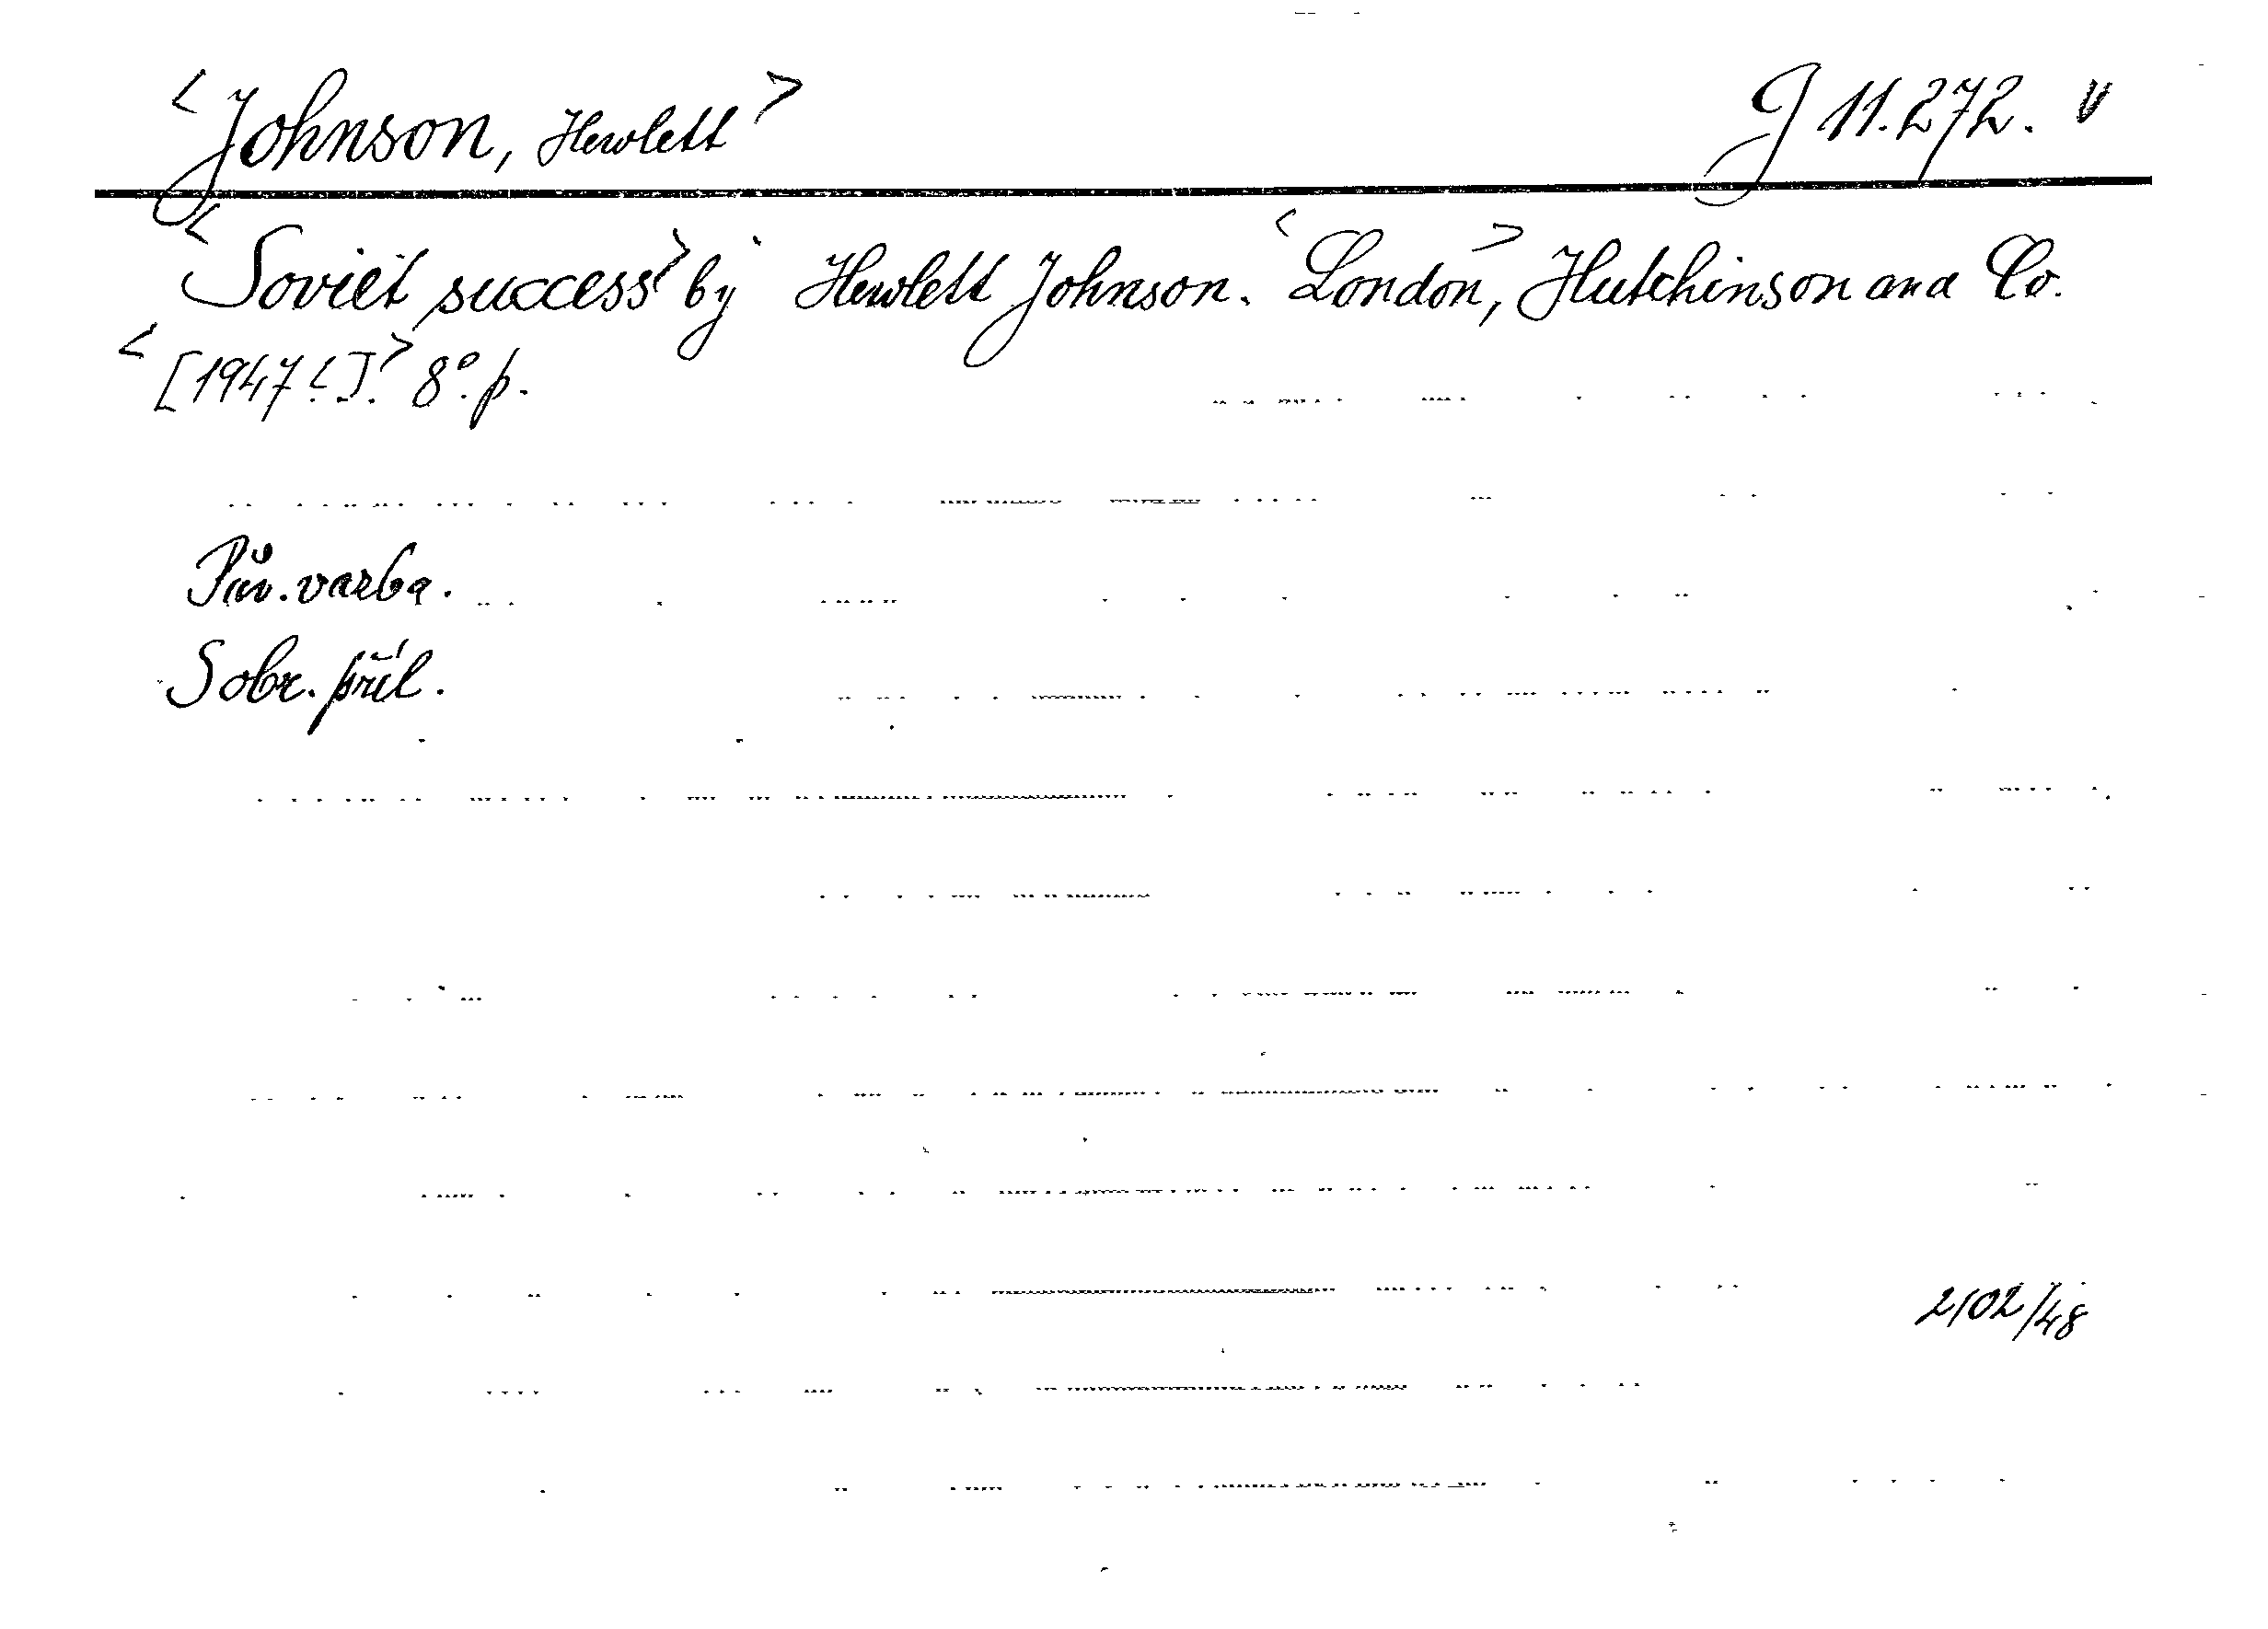 <Johnson, Hewlett> J 11.272.
<Soviet success> by Hewlett Johnson. <London>, Hutchinson and Co.
<[1947?].> 8°. p.
Pův. vazba.
Sobr. příl.
2102/48